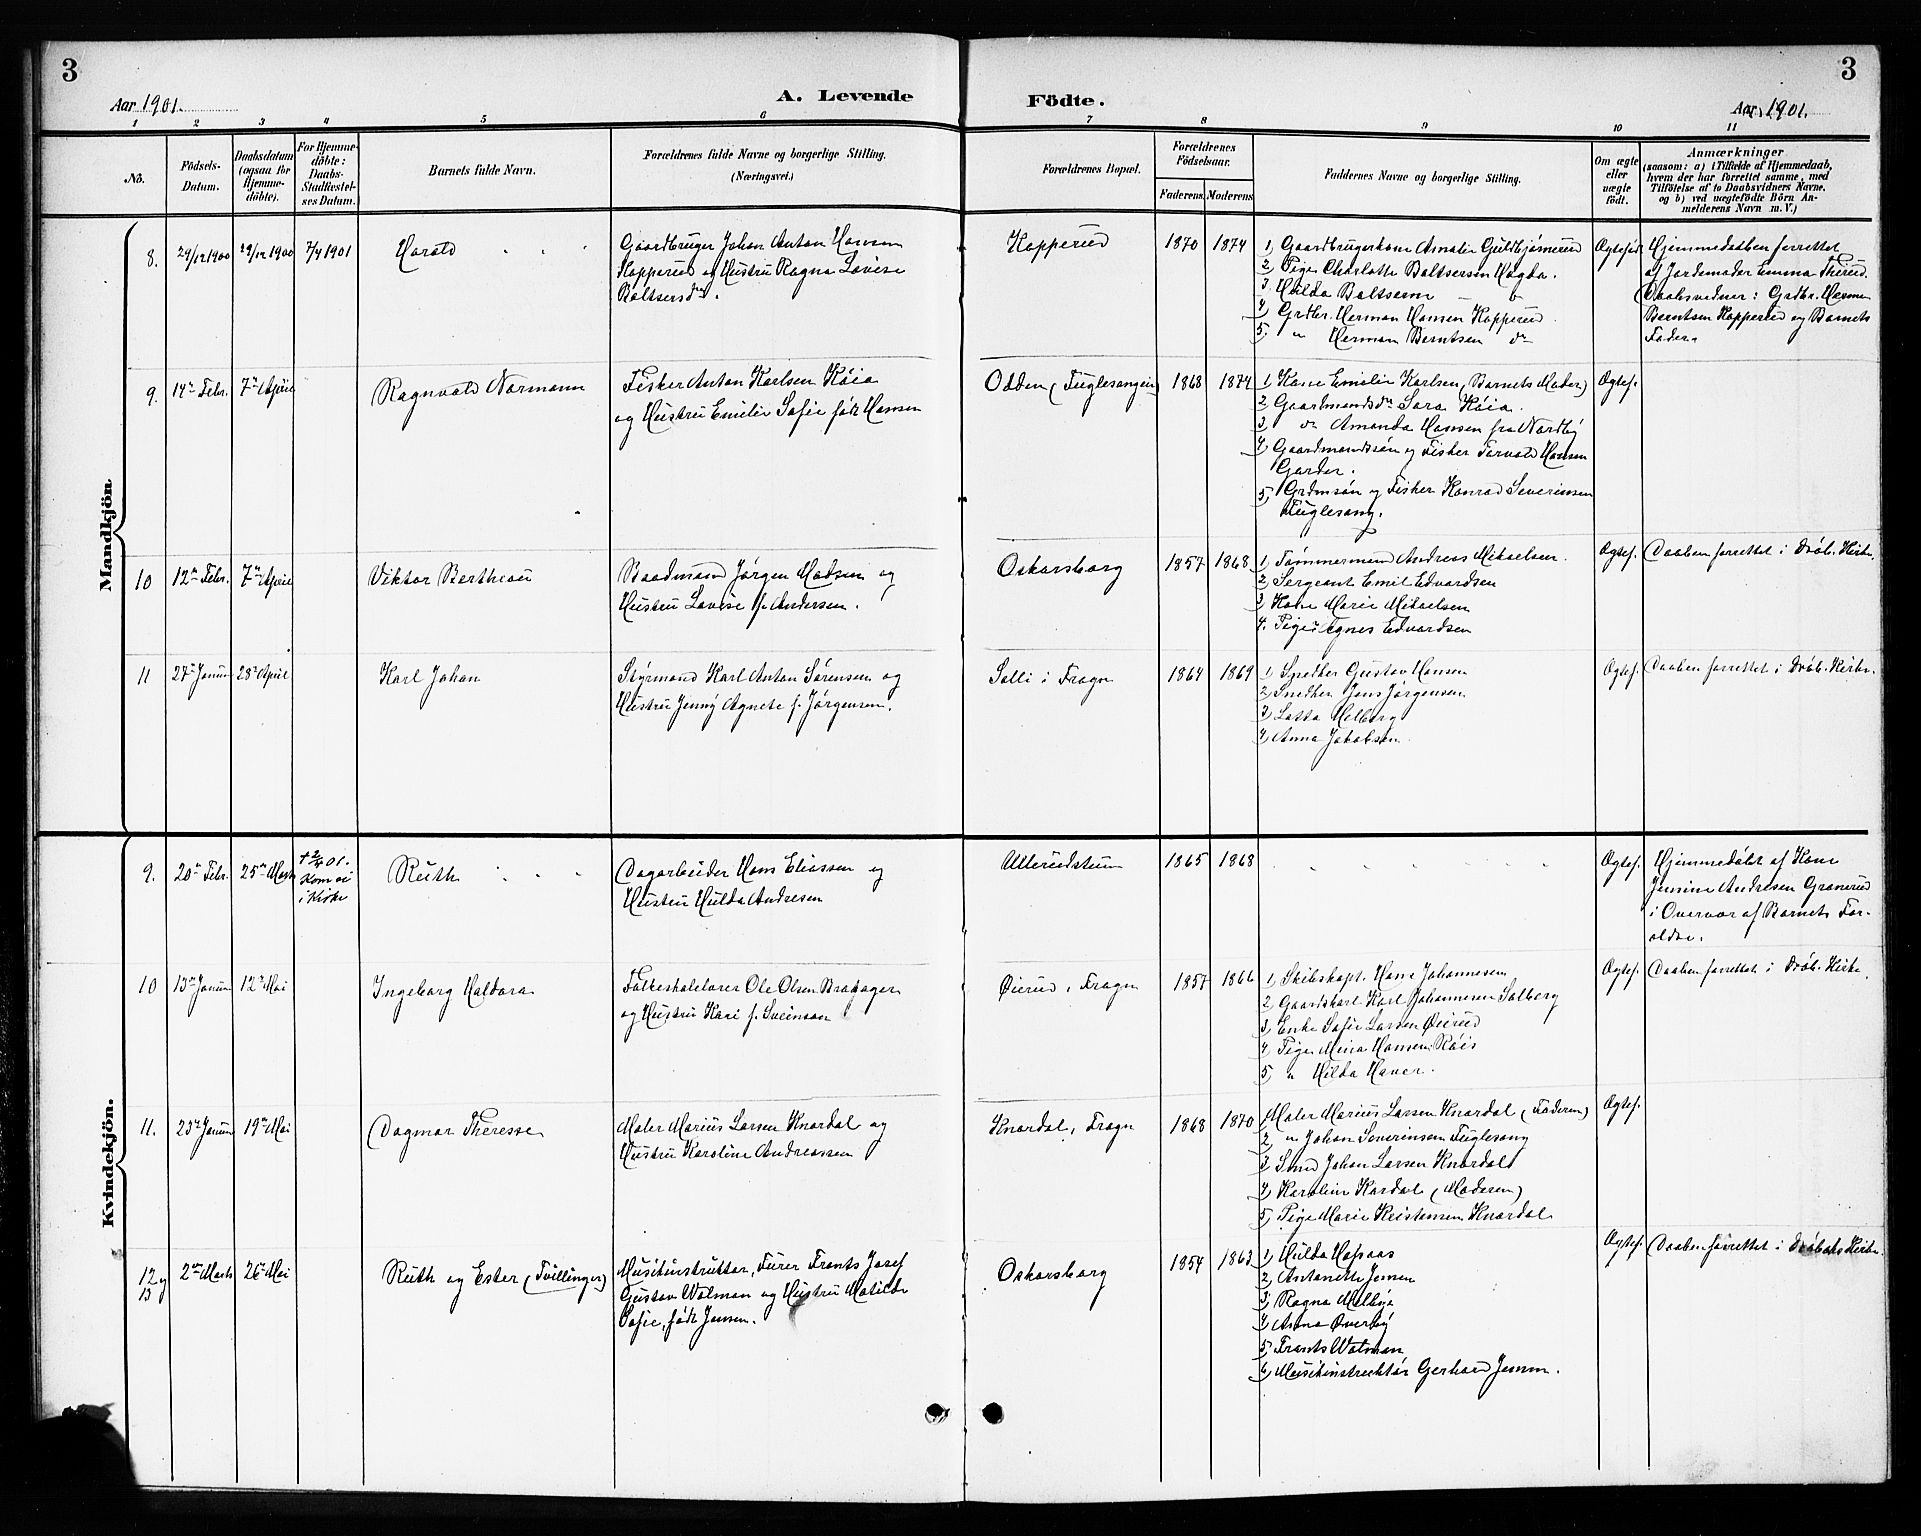 3
3
Aar 1901.
A. Levende
Födte.
Aar 1901.
1 2 3 4 5 6 7 8 9 10 11
No.
Födsels-
Datum.
Daabsdatum
(ogsaa for
Hjemme-
döbte).
For Hjemme-
döbte:
Daabs-
Stadfæstel-
ses Datum.
Barnets fulde Navn.
Forældrenes fulde Navne og borgerlige Stilling.
(Næringsvei.)
Forældrenes Bopæl.
Forældrenes
Födselsaar.
Faderens
Moderens
Faddernes Navne og borgerlige Stilling.
Om ægte
eller
uægte
födt.
Anmærkninger
(saasom: a) i Tilfælde af Hjemmedaab,
hvem der har forrettet samme, med
Tilföielse af to Daabsvidners Navne,
og b) ved uægtefödte Börn An-
melderens Navn m. V.)
Mandkjön.
8. 29/12 1900 29/12 1900 7/4 1901
Harald
Gaardbruger Johan Anton Hansen
Kopperud og Hustru Ragna Lovise
Baltsersdr.
Kopperud
1870 1874
1, Gaardbrugerkone Amalie Guldbjørnerud
2, Pige Charlotte Baltsersen Hogda.
3, Hilda Baltsersen
4, Grdbr. Herman Hansen Kopperud.
5, " Herman Berntsen do
Ægtefød.
Hjemmedaaben forrettet
af Jordemoder Emma Therud.
Daabsvidner: Grdbr. Herman
Berntsen Kopperud og Barnets
Fader.
9. 14de Febr. 7de April
Ragnvald Normann
Fisker Anton Karlsen Røia
og Hustru Emilie Sofie født Hansen
Odden (Fuglesangen)
1868 1874
1, Kone Emilie Karlsen, (Barnets Moder)
2, Gaardmandsdr Sara Røia.
3, do Amanda Hansen fra Nordby
4, Gaardmandssøn og Fisker Torvald Hansen
Garder.
5, Grdmsøn og Fisker Konrad Severinsen
Fuglesang.
Ægtef.
10 12te Febr. 7de April
Viktor Bertheau
Baadmand Jørgen Madsen og
Hustru Lovise f. Andersen.
Oskarsborg
1857 1868
1, Tømmermand Andreas Mikaelsen.
2, Sergeant Emil Edvardsen
3, Kone Marie Mikaelsen
4. Pige Agnes Edvardsen
Ægtef.
Daaben forrettet i Drøb. Kirke.
11 27de Januar 28de April
Karl Johan
Styrmand Karl Anton Sørensen og
Hustru Jenny Agnete f. Jørgensen.
Solli i Frogn
1864 1869
1, Snedker Gustav Hansen
2, Snedker Jens Jørgensen
3, Lotta Helberg
4, Anna Jakobsen.
Ægtef.
Daaben forrettet i Drøb. Kirke.
Kvindekjön.
9. 20de Febr. 25de Marts
+ 2/4 01.
Kom ei
i Kirke
Ruth
Dagarbeider Hans Eliassen og
Hustru Hulda Andresen
Ullerudstuen
1865 1868
Ægtef.
Hjemmedøbt af Kone
Jensine Andresen Granerud
i Overvær af Barnets For-
ældre.
10 13de Januar 12te Mai
Ingeborg Haldora
Folkeskolelærer Ole Olsen Bragager
og Hustru Kari f. Sveinson
Øierud i Frogn
1857 1866
1, Skibskapt. Hans Johannesen
2, Gaardskarl Karl Johannesen Solberg
3, Enke Sofie Larsen Øierud
4, Pige Mina Hansen Røis
5, " Hilda Haver.
Ægtef.
Daaben forrettet i Drøb. Kirke.
11. 23de Januar 19de Mai
Dagmar Therese
Maler Marius Larsen Knardal og
Hustru Karoline Andreassen
Knardal, Frogn
1868 1870
1, Maler Marius Larsen Knardal (Faderen)
2, " Johan Severinsen Fuglesang
3, Smed Johan Larsen Knardal
4, Karoline Kardal (Moderen)
5, Pige Marie Kristansen Knardal
Ægtef.
12 og
13
2den Marts 26de Mai
Ruth og Ester (Tvillinger)
Musikinstruktør, Furer Frants Josef
Gustav Walman og Hustru Matilde
Sofie, født Jensen.
Oskarsborg
1854 1863
1, Hulda Hofsaas
2, Antonette Jensen
3, Ragna Melbye
4, Anna Øverby
5, Frants Walman
6, Musikinstruktør Gerhard Jensen.
Ægtef.
Daaben forrettet i Drøbaks Kirke